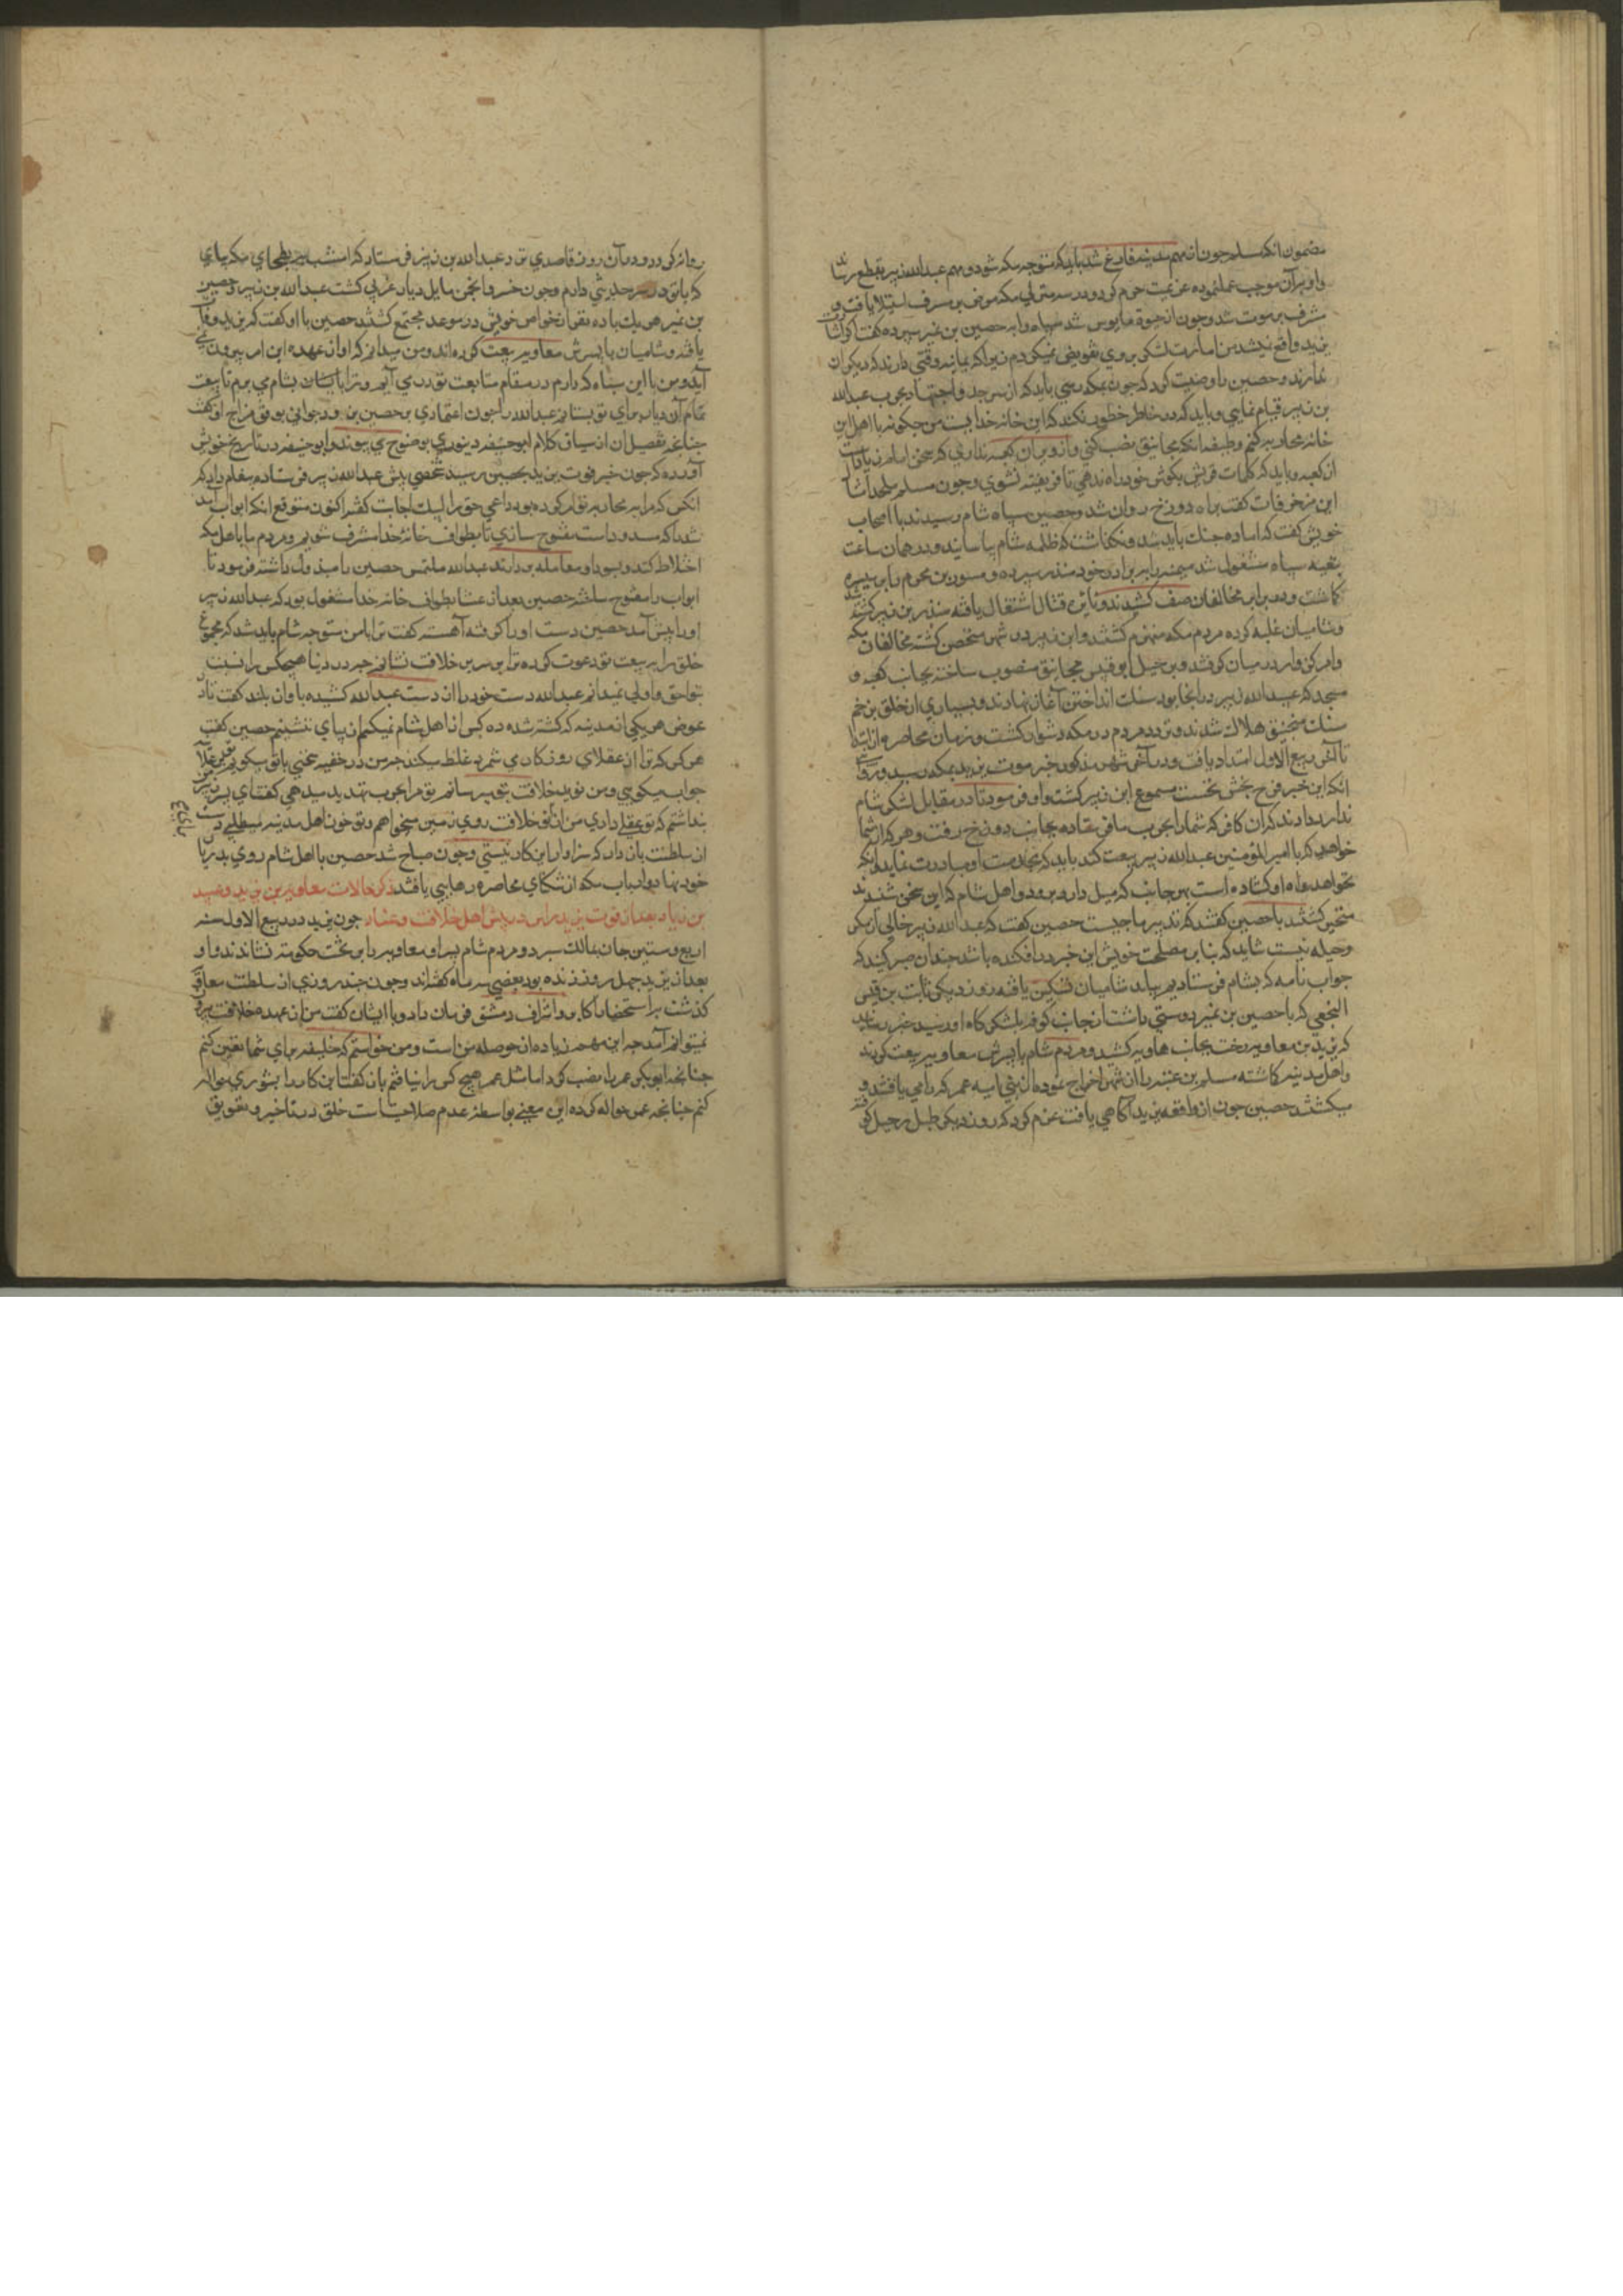 مضمون انکه مسلم چون از مهم مدینه فارغ شد باید که متوجه مکه شود و مهم عبدالله زبیر بقطع رساند
و او بر آن موجب عمل نموده عزیمت حرم کرد و در سه منزلی مکه
مشرف بر موت شد و چون از حیوة مایوس شد سپاه را به حصین بن نمیر سپرده گفت
یزید واقع نیشد من امارت لشکر بر وی تفویض نمیکردم زیرا که یمانیه رقتی دارند که دیکران
ندارند و حصین را وصیت کرد که چون بمکه رسی باید که از سر جد و اجتهاد بحرب عبدالله
بن زبیر قیام نمایی و باید که در خاطر خطور نکند که این خانه خدایست من چکونه با اهل این
خانه محاربه کنم و وظیفه انکه مجانیق نصب کنی و از ویران کعبه
از کعبه و باید که کلمات قریش بکوش خود راه ندهی تا فریفته نشوی و چون مسلم
این مزخرفات گفت براه دوزخ روان شد و حصین سپاه شام رسیدند با اصحاب
خویش گفت که اماده جنك باید شد و نگذاشت که ظلمه شام بیاسایند و در همان ساعت
بتعبیه سپاه مشغول شد میمنه را ببرادر خود منذر سپرده و مسور بن مخرم را بر میسره
کماشت و در برابر مخالفان صف کشیدند و نایره قتال اشتعال یافته منذر بن زبیر کشته شد
و شامیان غلبه کرده مردم مکه منهزم گشتند و ابن زبیر در شهر متحصن گشته مخالفان مکه
را مرکزوار در میان گرفتند و بر جبل ابو قبیس مجانیق منصوب ساخته بجانب کعبه و
مسجد که عبدالله زبیر در انجا بود سنك انداختن آغاز نهادند و بسیاری از خلق بزخم
سنك منجنیق هلاك شدند و تردد مردم در مکه دشوار گشت و زمان محاصره از ابتدا
تا آخر ربیع الاول امتداد یافت و در آخر شهر مذکور خبر موت یزید بمکه رسید و
انکه این خبر فرح بخش نخست مسموع ابن زبیر گشت و او فرمود تا در مقابل لشکر شام
ندا در دادند که آن کافر که شما را بحرب ما فرستاده بجانب دوزخ رفت و هر که از شما
خواهد که با امیر المؤمنین عبدالله زبیر بیعت کند باید که بخدمت او مبادرت نماید و انکه
نخواهد راه او کشاده است بهر جانب که میل دارد برود و اهل شام که این سخن شنیدند
متحیر گشتند با حصین گفتند که تدبیر ما چیست حصین گفت که عبدالله زبیر خالی از مکر
و حیله نیست شاید که بنا بر مصلحت خویش این خبر در افکنده باشد چندان صبر کنید که
جواب نامه که بشام فرستادیم بیاید شامیان تسکین یافته روز دیکر ثابت بن قیس
النخعی که با حصین بن نمیر دوستی داشت از جانب کوفه بلشکرگاه او رسید خبر رسانید
که یزید بن معاویه رخت بجانب هاویه کشید و مردم شام با پسرش معاویه بیعت کردند
و اهل مدینه کماشته مسلم بن عقبه را از شهر اخراج نموده از بنی امیه هر که را می یافتند
میکشتند حصین چون از واقعه یزید آگاهی یافت عزم کرد که روز دیکر طبل رحیل کوفته
روانه گردد و در آن روز قاصدی نزد عبدالله بن زبیر فرستاد که امشب بطحای مکه بیای
که با تو در سر حدیثی دارم و چون خسرو انجم مایل دیار غربی گشت عبدالله بن زبیر و حصین
بن نمیر هر یك با ده نفر از خواص خویش در موعد مجتمع گشتند حصین با او گفت که یزید وفات
یافته و شامیان با پسرش معاویه بیعت کرده اند و من میدانم که او از عهده این امر بیرون نمی
آید و من با این سپاه که دارم در مقام متابعت تو در می آیم و ترا با ایشان بشام می برم تا بیعت
تمام آن دیار برای تو بستانم عبدالله را چون اعتمادی بر حصین نبود جوابی بوفق مزاج او نگفت
چنانچه تفصیل آن از سیاق کلام ابو حنیفه دینوری بوضوح می پیوندد ابو حنیفه در تاریخ خویش
آورده که چون خبر فوت یزید بحصین رسید شخصی پیش عبدالله زبیر فرستاده پیغام داد که
انکس که مرا بر محاربه تو امر کرده بود داعی حق را لبیك اجابت گفت اکنون متوقع انکه ابواب
شد که مسدود است مفتوح سازی تا بطواف خانه خدا مشرف شویم و مردم ما با اهل مکه
اختلاط کنند و بسودا و معامله پردازند عبدالله ملتمس حصین را مبذول داشته فرمود تا
ابواب را مفتوح ساختند حصین بعد از عشا بطواف خانه خدا مشغول بود که عبدالله زبیر
او را پیش آمد حصین دست او را گرفته آهسته گفت ترا با من متوجه شام باید شد که مجموع
خلق را به بیعت تو دعوت کرده ترا بر سریر خلافت نشانم چه در دنیا هیچکس را نسبت
بتو احق و اولی نمیدانم عبدالله دست خود را از دست عبدالله کشیده باواز بلند گفت تا در
عوض هر یکی از مدینه که کشته شده ده کس از اهل شام نمیکشم از پای ننشینم حصین گفت
هر کس که ترا از عقلای روزکار می شمرد غلط میکند چه من در خفیه سخنی با تو میکویم تو بر ملا
جواب میکویی و من نوید خلافت بتو میرسانم تو مرا بحرب تهدید میدهی گفت ای پسر زبیر من
پنداشتم که تو عقلی داری من از تو خلافت روی زمین میخواهم و تو خون اهل مدینه میطلبی دست
از سلطنت باز دار که سزاوار این کار نیستی و چون صباح شد حصین با اهل شام روی بدیار
خود نهاد و ارباب مکه از تنکنای محاصره رهایی یافتند ذکر حالات معاویه بن یزید و عبید
بن زیاد بعد از فوت یزید پلید در پیش اهل خلافت و عناد چون یزید در ربیع الاول سنه
اربع و ستین جان بمالك سپرد و مردم شام پسر او معاویه را بر تخت حکومت نشاندند و او
بعد از یزید چهل روز زنده بود و بعضی سه ماه گفته اند و چون چند روزی از سلطنت معاویه
گذشت باستحضار اکابر و اشراف دمشق فرمان داد و با ایشان گفت من از عهده خلافت بیرون
نمیتوانم آمد چه این مهم زیاده از حوصله من است و من خواستم که خلیفه برای شما تعین کنم
چنانچه ابوبکر عمر را نصب کرد اما مثل عمر هیچ کس را نیافتم باز گفتم این کار را بشوری حواله
کنم چنانچه عمر حواله کرده این معنی بواسطه عدم صلاحیت است خلق در تاخیر و تعویق